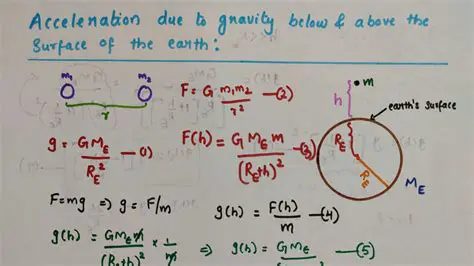 Acceleration due to gravity below & above the
surface of the earth:
m₁ m₂
r
F = G m₁m₂ / r² —(2)
m
h
earth's surface
g = G M_E / R_E² —(1)
F(h) = G M_E m / (R_E+h)² —(3)
R_E
R_E
M_E
F=mg ⇒ g = F/m
g(h) = F(h) / m —(4)
g(h) = G M_E m / (R_E+h)² × 1/m ⇒ g(h) = G M_E —(5)